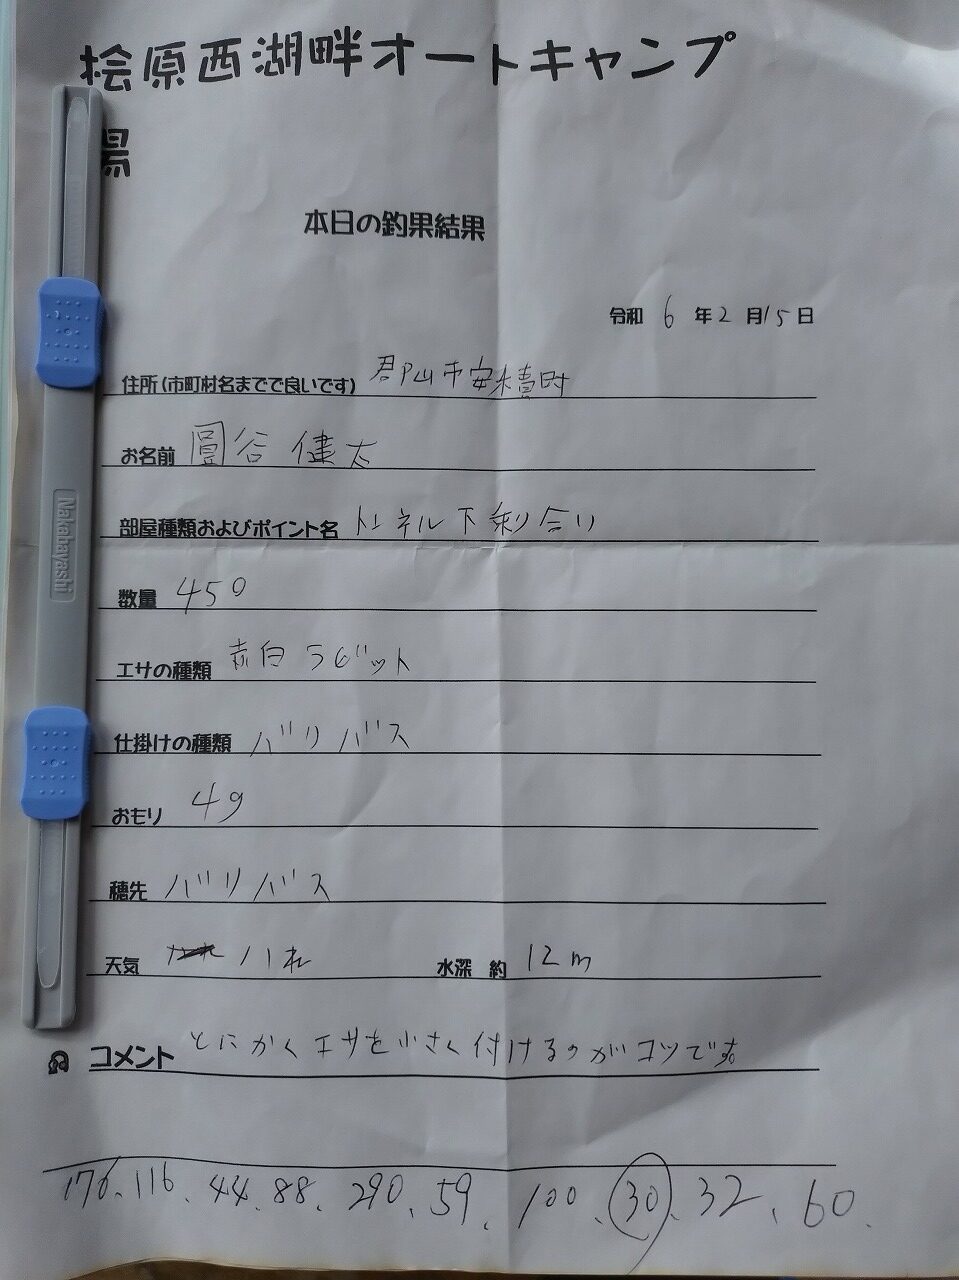 桧原西湖畔オートキャンプ
場
本日の釣果結果
令和 6 年 2 月 15 日
住所(市町村名までで良いです) 郡山市安積町
お名前 圓谷 健太
部屋種類およびポイント名 トンネル下乗合い
数量 450
エサの種類 赤白ラビット
仕掛けの種類 バリバス
おもり 4g
穂先 バリバス
天気 ハれ 水深 約 12m
コメント とにかくエサを小さく付けるのがコツです。
176、116、44、88、290、59、100、30、32、60、
Nakabayashi